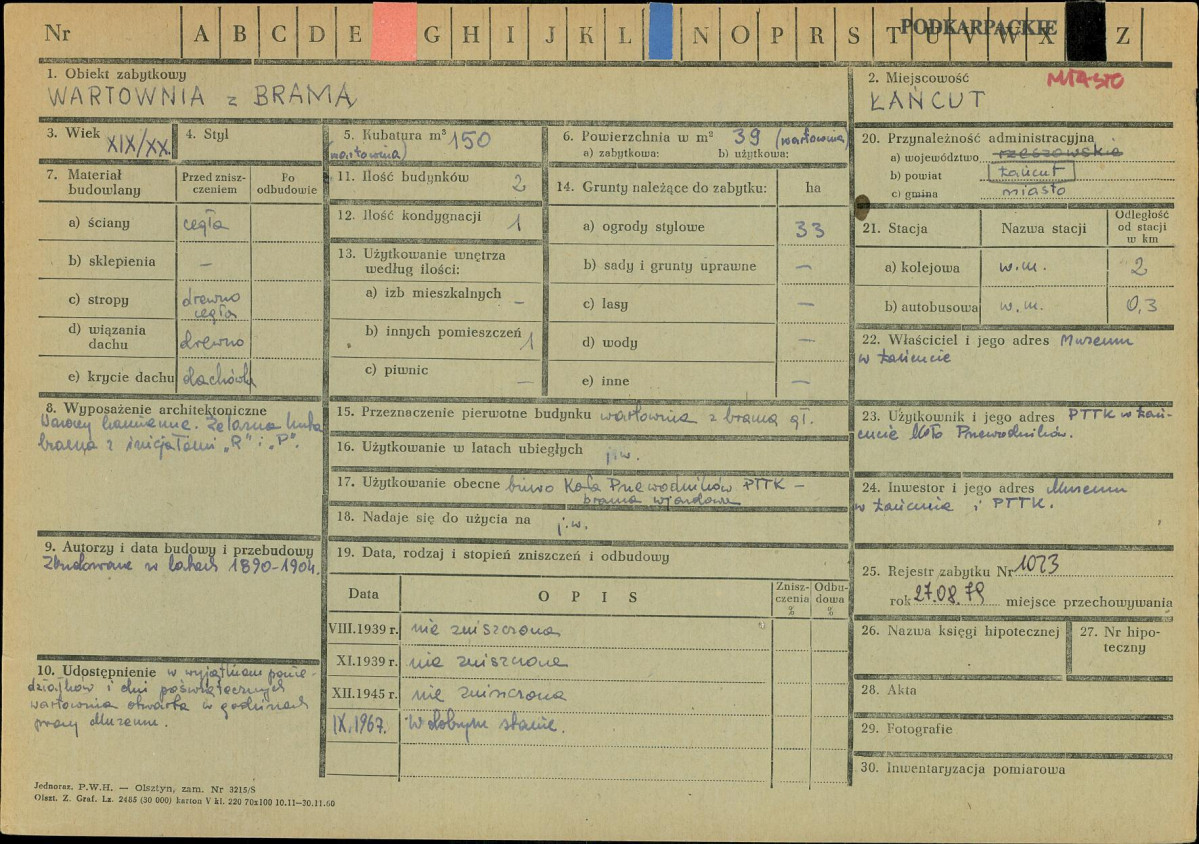 Nr A B C D E G H I J K L N O P R S T U V W X Z
PODKARPACKIE
1. Obiekt zabytkowy
WARTOWNIA z BRAMĄ
2. Miejscowość MIASTO
ŁAŃCUT
3. Wiek XIX/XX.
4. Styl
5. Kubatura m³ 150
(wartownia)
6. Powierzchnia w m² 39 (wartownia)
a) zabytkowa: b) użytkowa:
7. Materiał budowlany
Przed zniszczeniem
Po odbudowie
a) ściany cegła
b) sklepienia —
c) stropy drewno
cegła
d) wiązania dachu drewno
e) krycie dachu dachówka
8. Wyposażenie architektoniczne
kamienne. Żelazna kuta
brama z inicjałami „R" i „P".
9. Autorzy i data budowy i przebudowy
Zbudowane w latach 1890-1904.
10. Udostępnienie w wyjątkiem ponie-
działków i dni poświątecznych
wartownia otwarta w godzinach
pracy Muzeum.
11. Ilość budynków 2
12. Ilość kondygnacji 1
13. Użytkowanie wnętrza
według ilości:
a) izb mieszkalnych —
b) innych pomieszczeń 1
c) piwnic —
14. Grunty należące do zabytku: ha
a) ogrody stylowe 33
b) sady i grunty uprawne —
c) lasy —
d) wody —
e) inne —
15. Przeznaczenie pierwotne budynku wartownia z bramą gł.
16. Użytkowanie w latach ubiegłych j.w.
17. Użytkowanie obecne biuro Koła Przewodników PTTK —
brama wjazdowa
18. Nadaje się do użycia na j.w.
19. Data, rodzaj i stopień zniszczeń i odbudowy
Data
O P I S
Zniszczenia %
Odbudowa %
VIII.1939 r. nie zniszczona
XI.1939 r. nie zniszczona
XII.1945 r. nie zniszczona
IX.1967. W dobrym stanie.
20. Przynależność administracyjna
a) województwo rzeszowskie
b) powiat Łańcut
c) gmina miasto
21. Stacja
Nazwa stacji
Odległość od stacji w km
a) kolejowa w.m. 2
b) autobusowa w.m. 0,3
22. Właściciel i jego adres Muzeum
w Łańcucie
23. Użytkownik i jego adres PTTK w Łań-
cucie Koło Przewodników.
24. Inwestor i jego adres Muzeum
w Łańcucie i PTTK.
25. Rejestr zabytku Nr 1023
rok 27.08.79 miejsce przechowywania
26. Nazwa księgi hipotecznej
27. Nr hipoteczny
28. Akta
29. Fotografie
30. Inwentaryzacja pomiarowa
Jednoraz. P.W.H. — Olsztyn, zam. Nr 3215/S
Olszt. Z. Graf. Lz. 2485 (30 000) karton V kl. 220 70x100 10.11—30.11.60